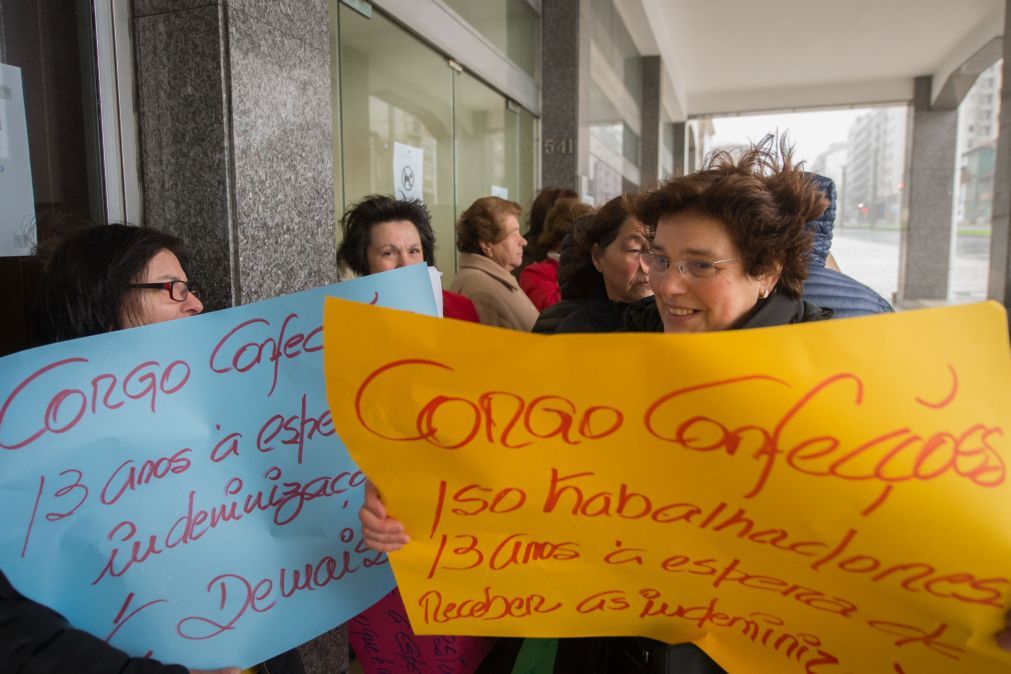 541
Corgo Confec
13 anos à espe
indeminizaçã
é Demais
Corgo Confecções
150 trabalhadores
13 anos à espera de
receber as indeminiz